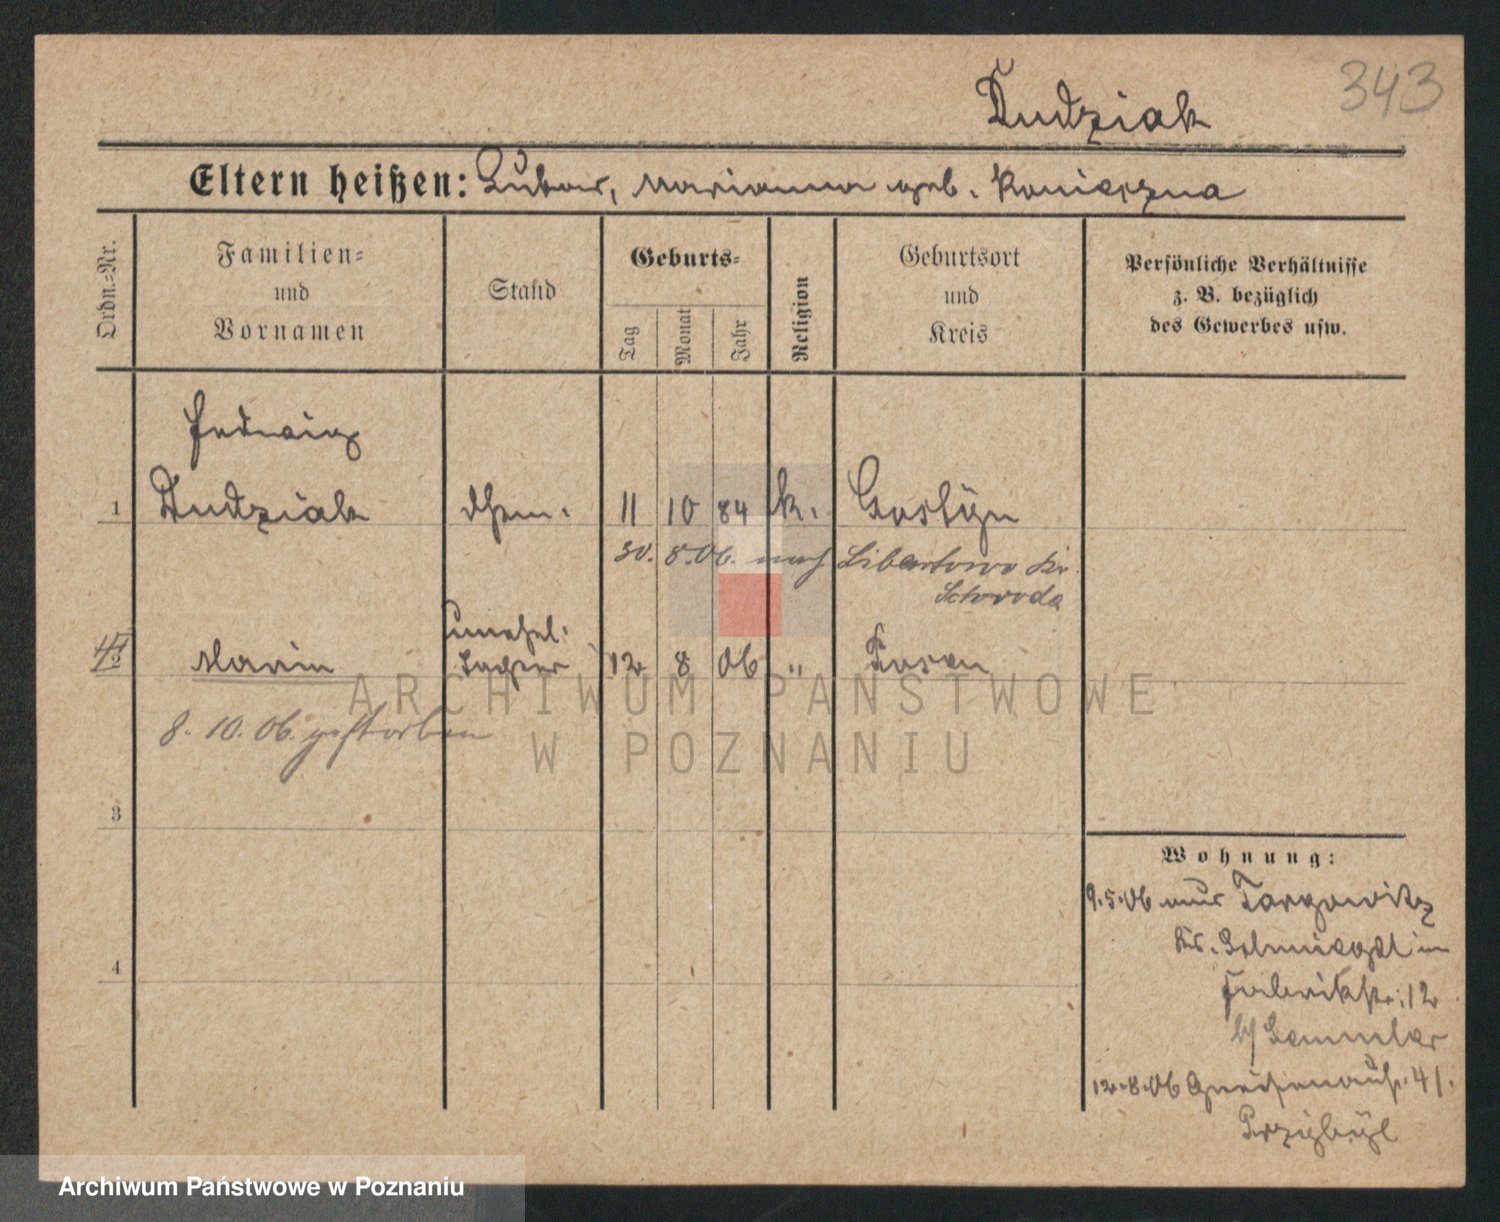 343
Dudziak
Eltern heißen: Lukas, Marianna geb. Konieczna
Ordn.-Nr.
Familien-
und
Vornamen
Stand
Geburts-
Tag
Monat
Jahr
Religion
Geburtsort
und
Kreis
Persönliche Verhältnisse
z. B. bezüglich
des Gewerbes usw.
Hedwig
1 Dudziak 11 10 84 k. Gostyn
30. 8. 06. nach Libartowo Kr.
Schroda
unehel.
2 Maria Tochter 12 8 06 " Posen
8. 10. 06. gestorben
3
4
Wohnung:
9.5.06 aus Targowitz
Kr. Schmiegel in
Fabrikstr. 12
b/
12.8.06 Gneisenaustr. 4/.
Przybyl
ARCHIWUM PAŃSTWOWE
W POZNANIU
Archiwum Państwowe w Poznaniu